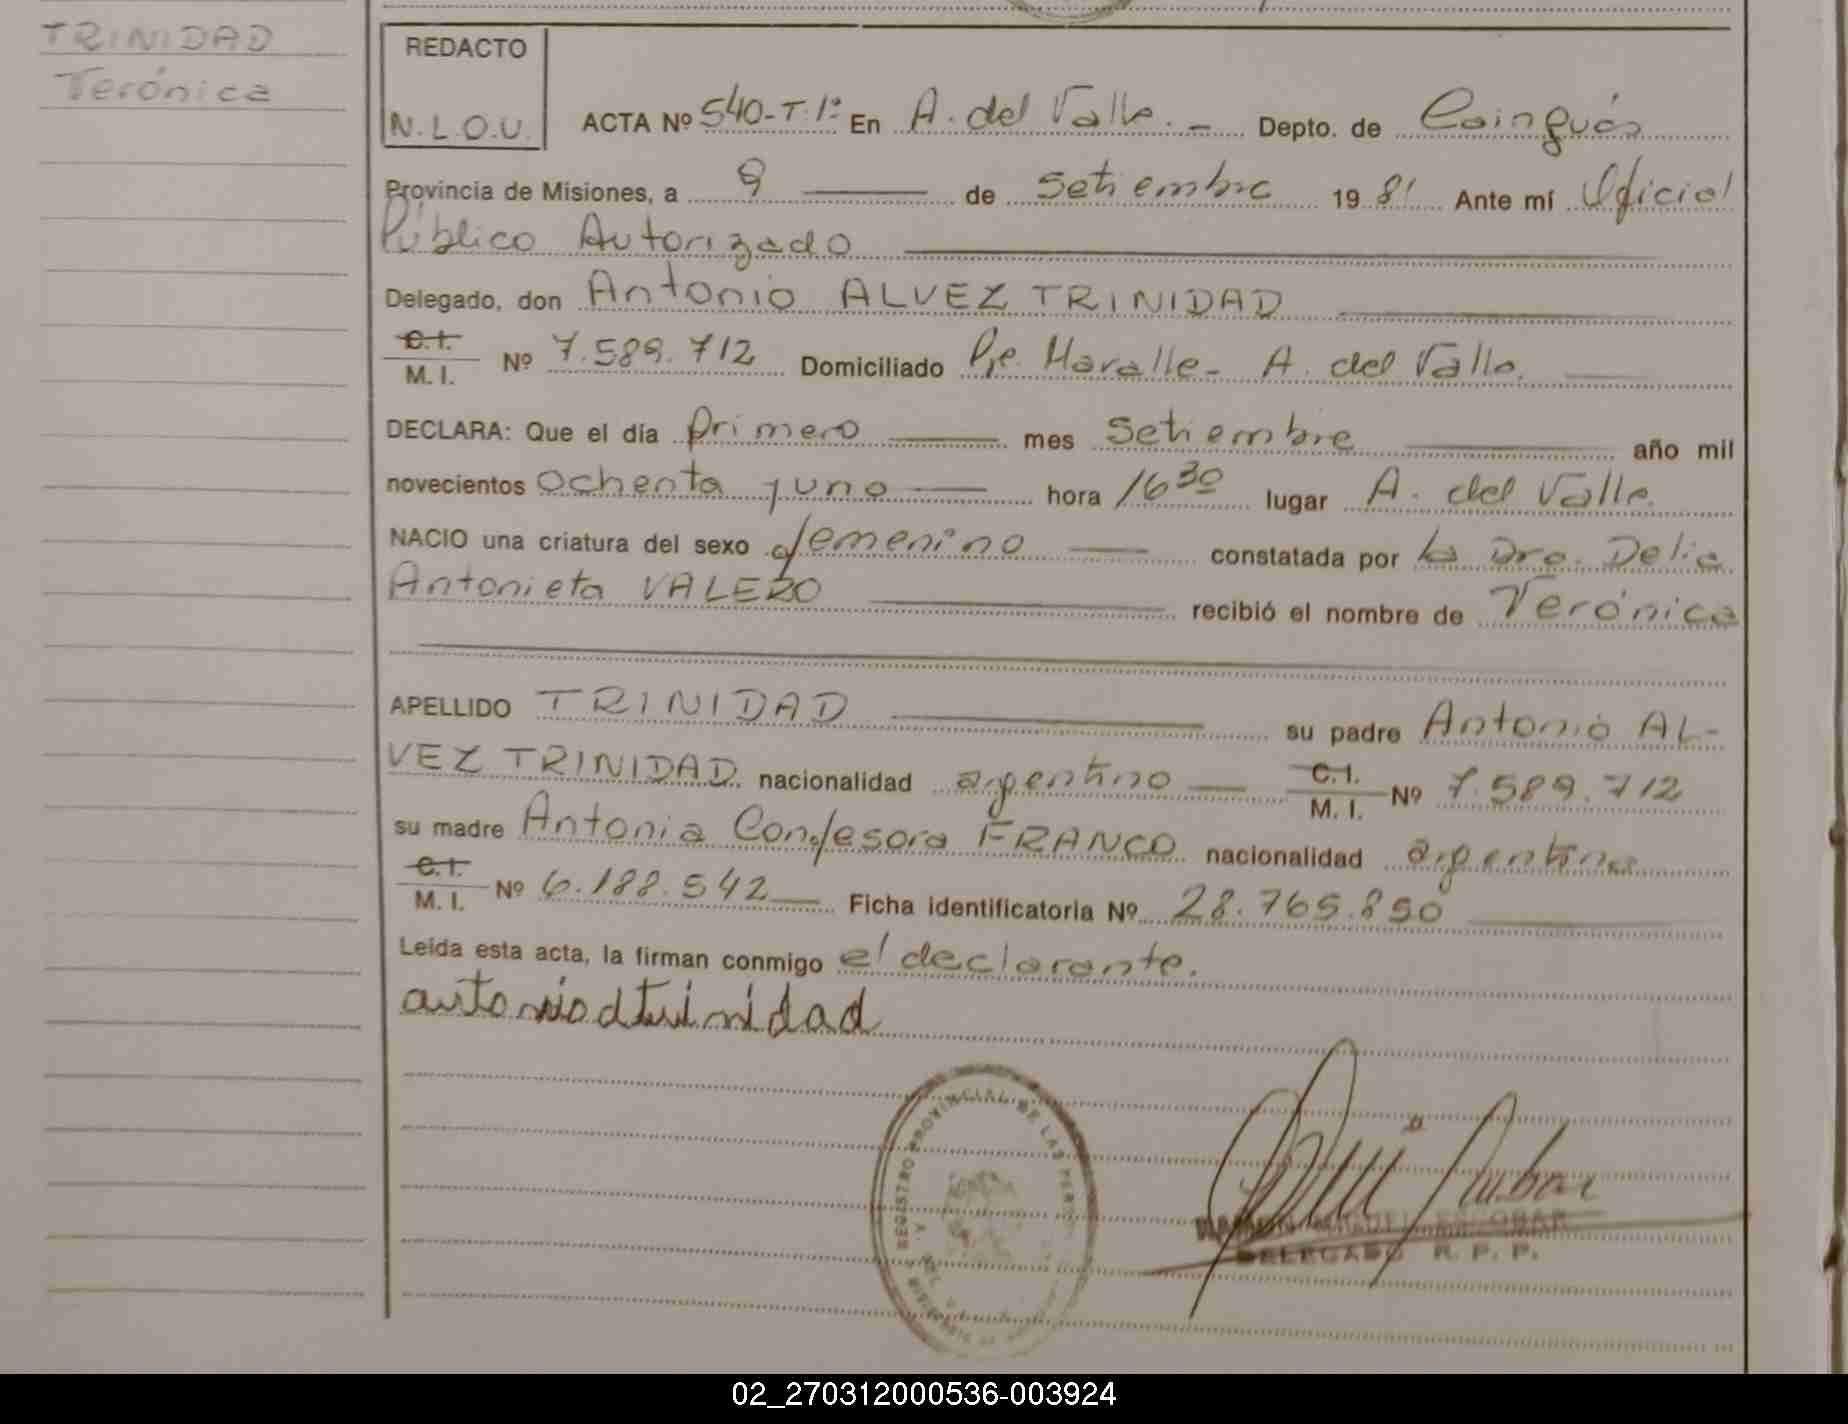 TRINIDAD
Verónica
REDACTO
N.L.O.U.
ACTA Nº 540-T.1º En A. del Valle. - Depto. de Cainguás
Provincia de Misiones, a 9 de Setiembre 1981 Ante mí Oficial
Público Autorizado
Delegado, don Antonio ALVEZ TRINIDAD
C.I. M. I. Nº 7.589.712 Domiciliado Pje. Maralle - A. del Valle.
DECLARA: Que el día primero mes Setiembre año mil
novecientos ochenta y uno hora 16 30 lugar A. del Valle.
NACIO una criatura del sexo femenino constatada por la Dra. Delia
Antonieta VALERO recibió el nombre de Verónica
APELLIDO TRINIDAD su padre Antonio AL-
VEZ TRINIDAD nacionalidad argentino C.I. M. I. Nº 7.589.712
su madre Antonia Confesora FRANCO nacionalidad argentina
C.I. M. I. Nº 6.188.542 Ficha identificatoria Nº 28.765.850
Leída esta acta, la firman conmigo el declarante.
antonio d trinidad
REGISTRO PROVINCIAL DE LAS
RAMON MIGUEL ESCOBAR
DELEGADO R. P. P.
02_270312000536-003924